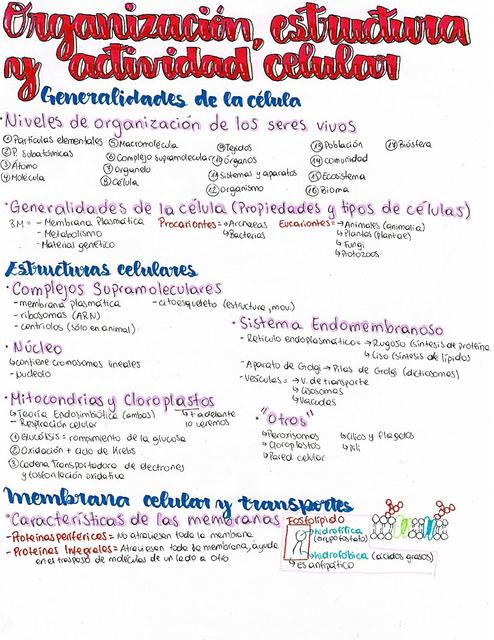 Organización, estructura
y actividad celular
Generalidades de la célula
·Niveles de organización de los seres vivos
① Partículas elementales ⑤ Macromolécula ⑨ Tejidos ⑬ Población ⑰ Biósfera
② P. Subatómicas ⑥ Complejo supramolecular ⑩ Órganos ⑭ comunidad
③ Átomo ⑦ Organelo ⑪ Sistemas y aparatos ⑮ Ecosistema
④ Molécula ⑧ Célula ⑫ organismo ⑯ Bioma
·Generalidades de la célula (Propiedades y tipos de células)
3M= - Membrana Plasmática Procariontes=→Archaeas Eucariontes=→Animales (animalia)
- Metabolismo ↳Bacterias ↳Plantas (plantae)
- Material genético ↳Fungi
↳Protozoos
Estructuras celulares
·Complejos Supramoleculares
-membrana plasmática -citoesqueleto (estructura, mov.)
-ribosomas (ARN)
-centriolos (sólo en animal)
·Núcleo
↳contiene cromosomas lineales
-nucleolo
·Sistema Endomembranoso
- Retículo endoplasmático=→Rugoso (síntesis de proteína
↳Liso (síntesis de lípidos
- Aparato de Golgi→Pilas de Golgi (dictiosomas)
-Vesículas=→V. de transporte
↳Lisosomas
↳Vacuolas
·Mitocondrias y Cloroplastos
↳Teoría Endosimbiótica (ambos) ↳+adelante
- Respiración celular lo veremos
① Glucólisis= rompimiento de la glucosa
② Oxidación + ciclo de Krebs
③ Cadena Transportadora de electrones
y fosforilación oxidativa
·"Otros"
↳Peroxisomas ↳Cilios y flagelos
↳Cloroplastos ↳Pili
↳Pared celular
Membrana celular y transportes
·Características de las membranas
-Proteínas periféricas= No atraviesan toda la membrana
- Proteínas Integrales= Atraviesan toda la membrana, ayuda
en el traspaso de moléculas de un lado a otro
Fosfolípido
→hidrofílica
(grupo fosfato)
→hidrofóbica (ácidos grasos)
↳es anfipático